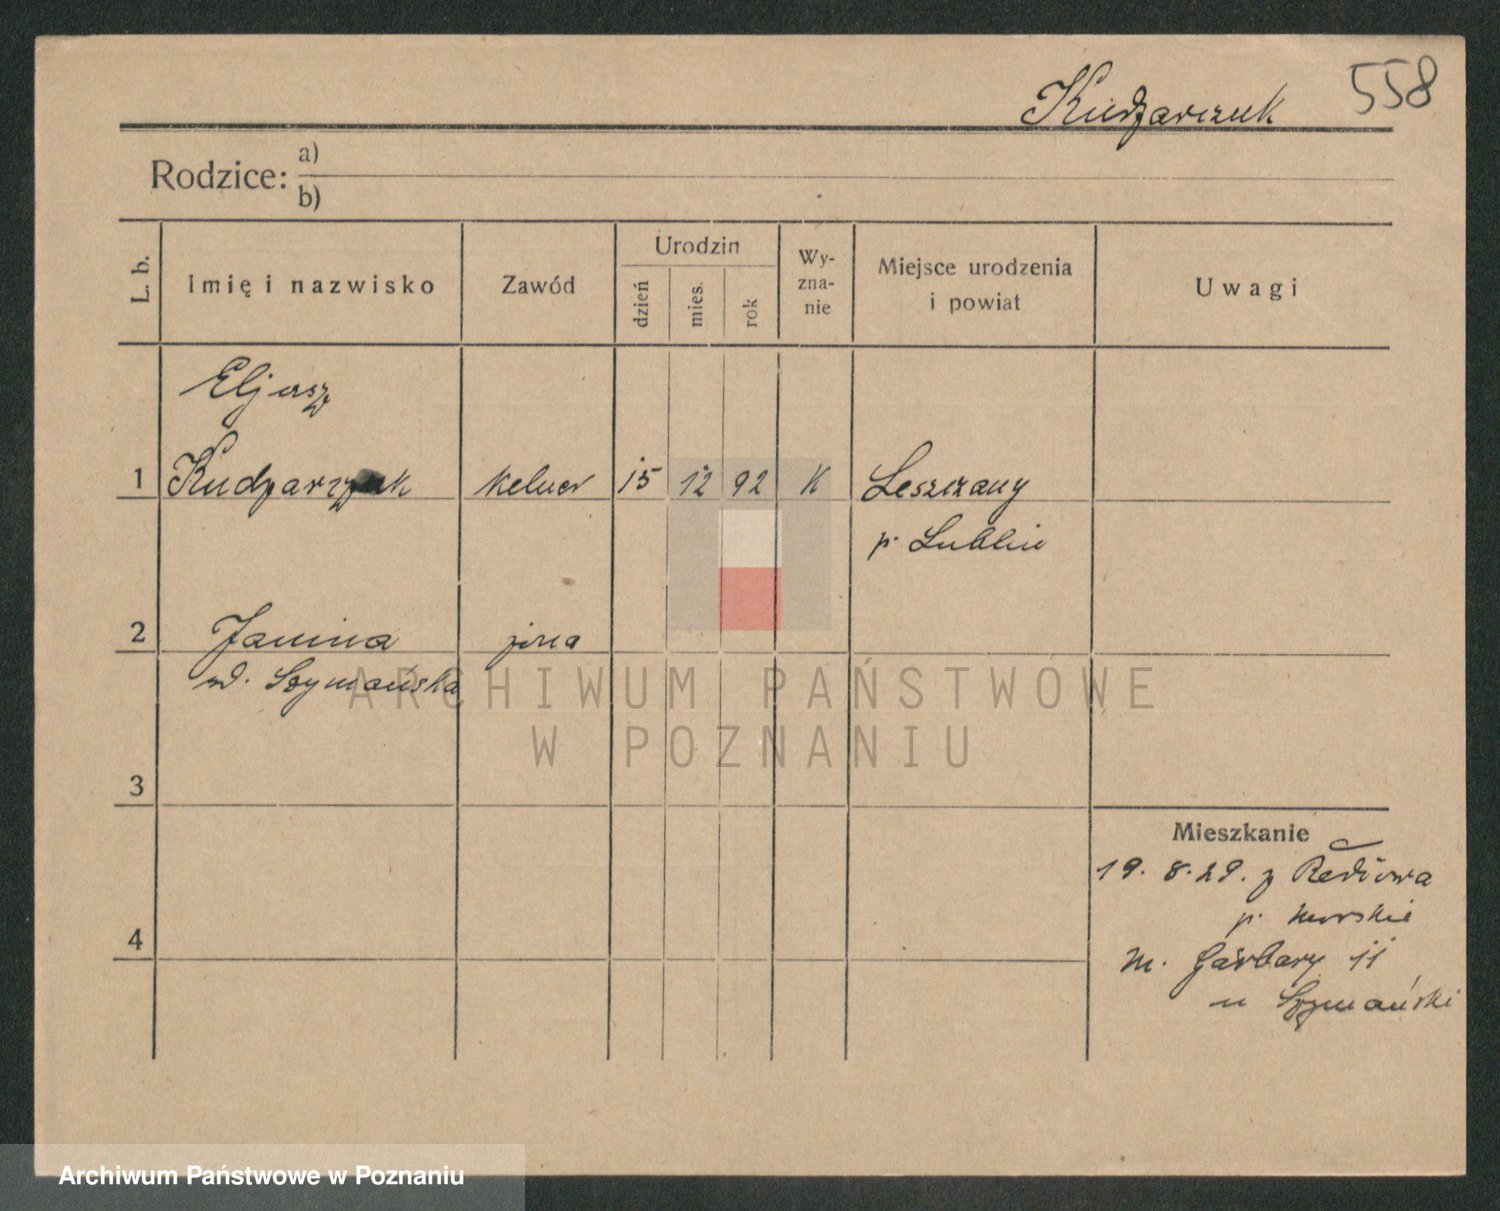 Kudzarczuk 558
Rodzice: a)
b)
L. b. Imię i nazwisko Zawód Urodzin dzień mies. rok Wy-zna-nie Miejsce urodzenia i powiat Uwagi
Eljasz
1 kelner 15 12 92 K Leszczany
p. Lublin
2 Janina żona
Szymańska
ARCHIWUM PAŃSTWOWE
W POZNANIU
3
Mieszkanie
19. 8. 29. z
p. morskie
4
m. Garbary 11
u Szymański
Archiwum Państwowe w Poznaniu